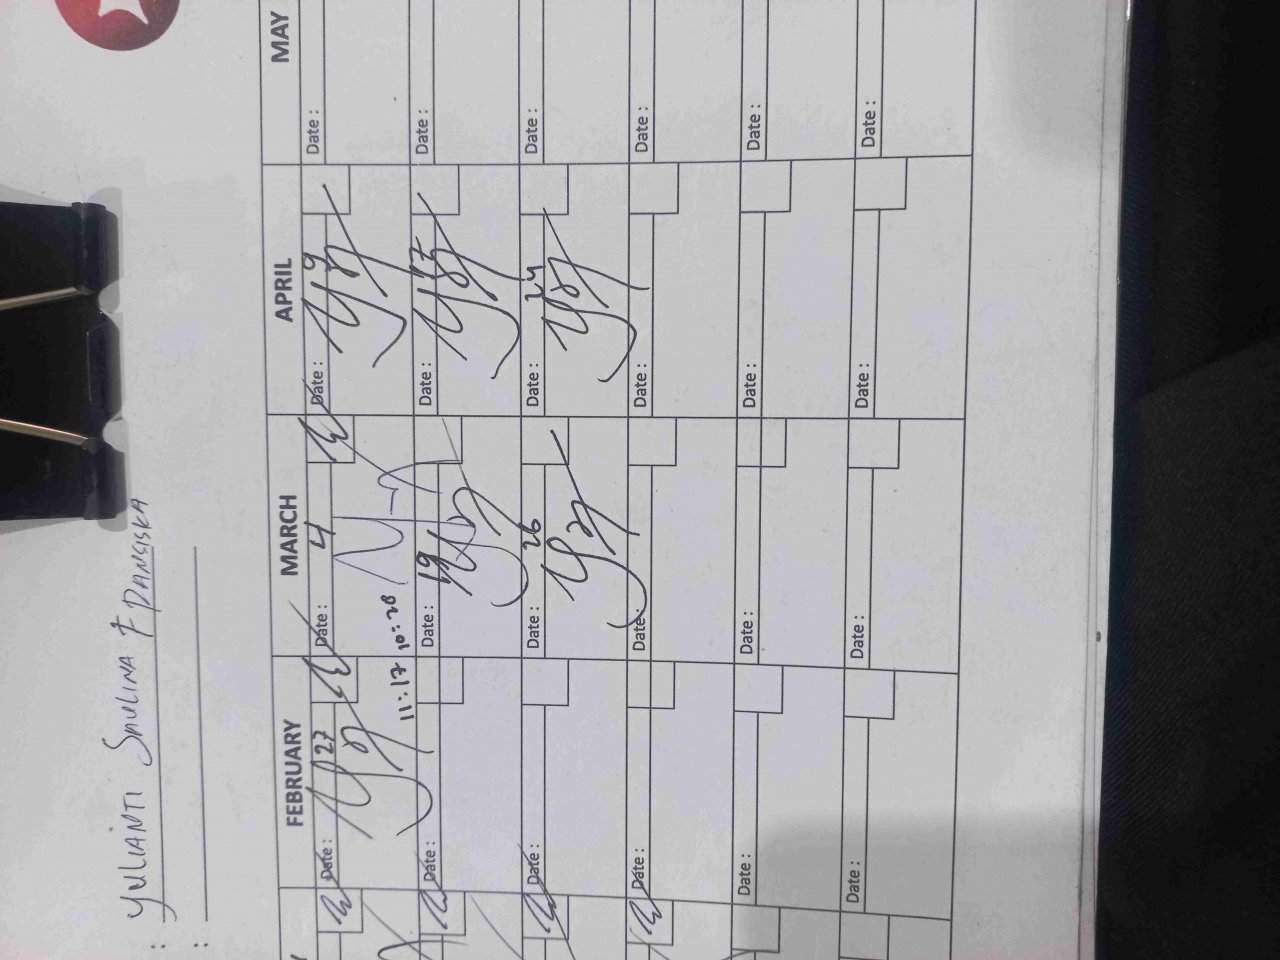 : YULIANTI
:
FEBRUARY MARCH APRIL MAY
Date : 27 Date : 4 Date : 9 Date :
11:17 10:28
Date : Date : 19 Date : 17 Date :
Date : Date : 26 Date : 24 Date :
Date : Date : Date : Date :
Date : Date : Date : Date :
Date : Date : Date : Date :